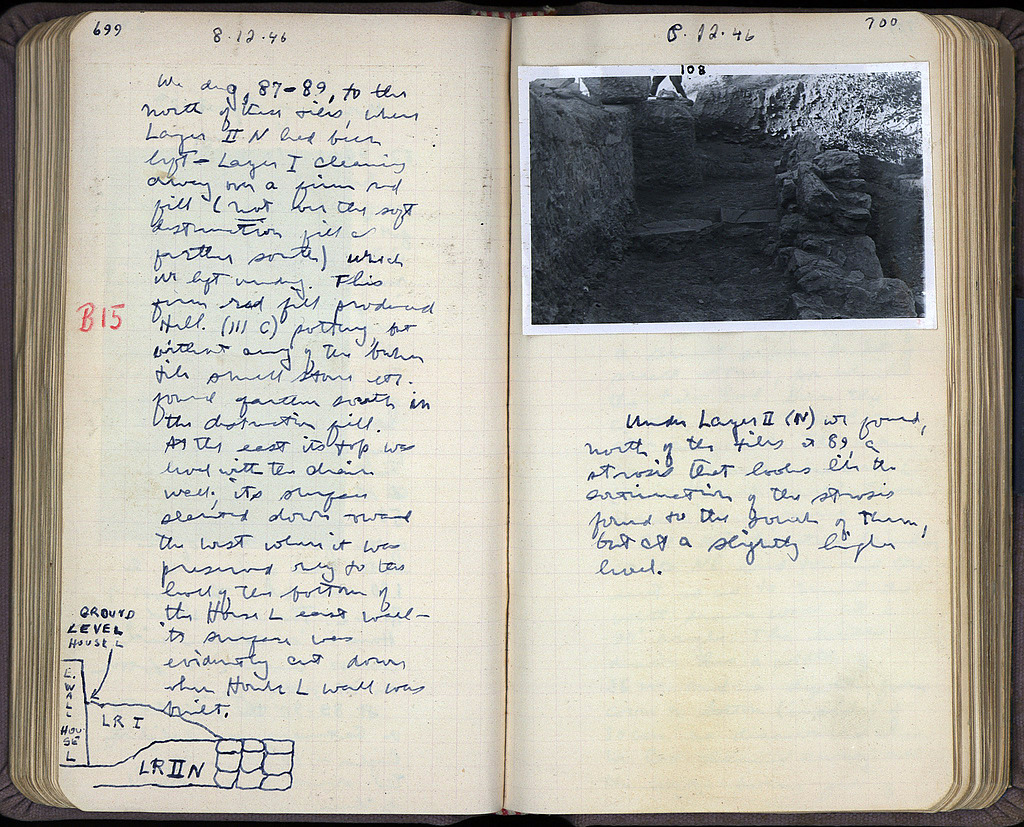 699
8.12.46
We dug, 87-89, to the
north of these tiles, where
Layer II N had been
left - Layer I cleaning
away over a firm red
fill (not over the soft
destruction fill as
farther south) which
we left undug. This
firm red fill produced
Hell. (III C) pottery but
without any of the broken
tile small stone etc.
found farther south in
the destruction fill.
At the east its top was
level with the drain
wall; its surface
slanted down toward
the west where it was
preserved only to the
level of the bottom of
the House L east wall -
its surface was
evidently cut down
when House L wall was
built.
B15
GROUND
LEVEL
HOUSE L
E. WALL HOUSE L
LR I
LR II N
700
8.12.46
108
Under Layer II (N) we found,
north of the tiles at 89, a
strosis that looks like the
continuation of the strosis
found to the south of them,
but at a slightly higher
level.